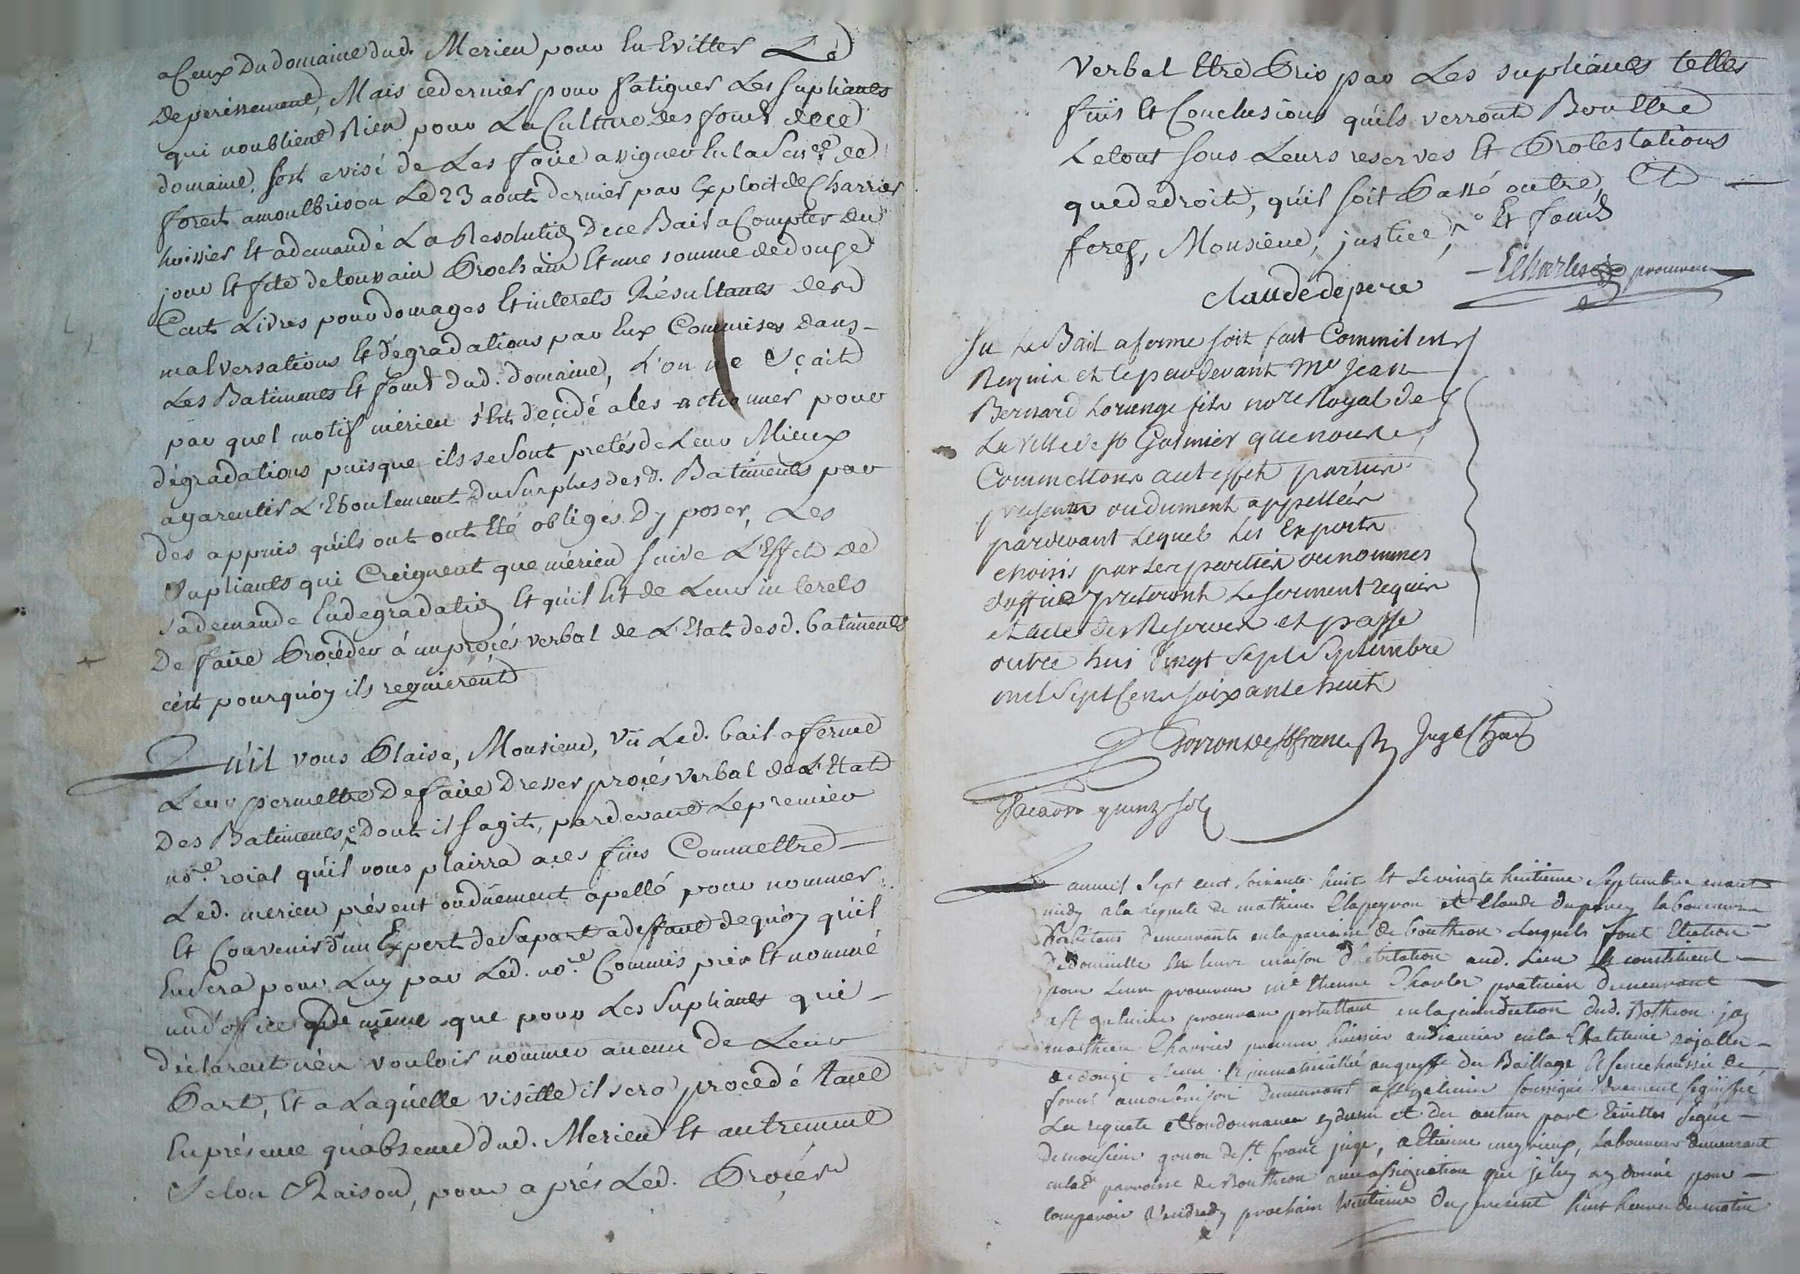 a Ceux Du domaine dud. Merieu pour En Eviter Le
deperissement, Mais ce dernier pour fatiguer Les supliants
qui noublient Rien pour La Culture des fonds de ce
domaine, s'est avisé de Les faire assigner En la Sen.ée de
forest a montbrison Le 23 aout dernier par Exploit de Charries
huissier Et a demandé La Resolution de ce Bail a Compter du
jour Et fete de toussain Prochain Et une somme de douze
Cent Livres pour domages Et interets Résultants desd
malversations Et dégradations par Eux Commises dans
Les Batiments Et fonds dud. domaine, L'on ne sçait
par quel motif mérieu s'Est decidé a les actionner pour
dégradations puisque ils se sont pretés de Leur Mieux
a garentir L'Eboulement Du Surplus desd. Batiments par
des appuis qu'ils ont Eté obligés D'y poser, Les
Supliants qui Creignent que mérieu suive L'Effet de
sa demande En degradation Et qu'il Est de Leurs interets
De faire Procéder à un procés verbal de L'Etat desd. batiments
c'est pourquoy ils requierent
Qu'il vous Plaise, Monsieur, Vû Led. bail a ferme
Leur permettre De faire Dresser procés verbal de L'Etat
Des Batiments Dont il s'agit, pardevant Le premier
no.re roial qu'il vous plairra a ces fins Commettre
Led. merieu présent ou dûement apellé pour nommer
Et Convenir d'un Expert de Sa part a deffaut de quoy qu'il
En Sera pour Luy par Led. no.re Commis pris Et nommé
un d'office de même que pour Les Supliants qui
déclarent n'en vouloir nommer aucun de Leur
Part, Et a Laquelle visitte il sera procedé tant
En présence qu'absence dud. Merieu Et autrement
Selon Raison, pour aprés Led. Procés
Verbal Etre Pris par Les supliants telles
fins Et Conclusions qu'ils verront Bon Etre
Le tout sous Leurs reserves Et Protestations
que de droit, qu'il soit Passé outre, Et
ferez, Monsieur, justice, Et
Claude depere
Echarles procureur
Vu Le Bail a ferme soit fait Comme il est
Requis et ce pardevant Me Jean
Bernard Lorange fils nore Royal de
La ville de st Galmier que nous
Commettons a cet effet parties
presentes ou dument appellées
pardevant Lequel Les Experts
choisis par Les parties ou nommes
d'office preteront Le serment requis
et acte des Reserves et passe
outre hui Vingt sept Septembre
mil sept Cent soixante huit
Juge Chat
quinze sols
L an mil sept cent soixante huit Et Le vingt huitieme Septembre avant
midy a la requete de mathieu Clapeyron et Claude Duperey laboureurs
habitans Demeurants en la parroisse de bouthéon Lesquels font Election
De domicille En leurs maison d'habitation aud. Lieu Et constituent
pour Leur procureur me Etienne Charles praticien Demeurant
a st galmier procureur postullant en la jurisdiction dud. Bothéon jay
mathieu Charries premier huissier audiancier en la Chatelenie rojalle
de donzi immatriculé au greffe du Baillage Et senechaussée de
forest a montbrison Demeurant a st galmier soussigné Duement signiffié
La requete Et ordonnance cy dessus et des autres part Ecrittes signé
De monsieur goron de st franc juge, a Etienne meyrieux, Laboureur demeurant
en lad parroisse de Bouthéon avec assignation que je luy ay donné pour
comparoir Vendredy prochain trentieme Du present huit heures du matin